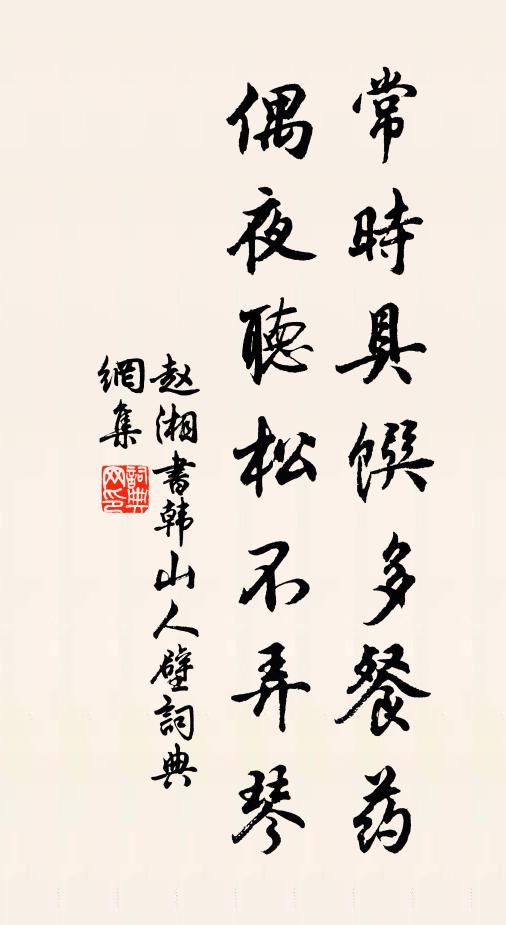 常時具饌多餐药
偶夜聽松不弄琴
赵湘書韩山人壁詞典
網集
詞典
网印